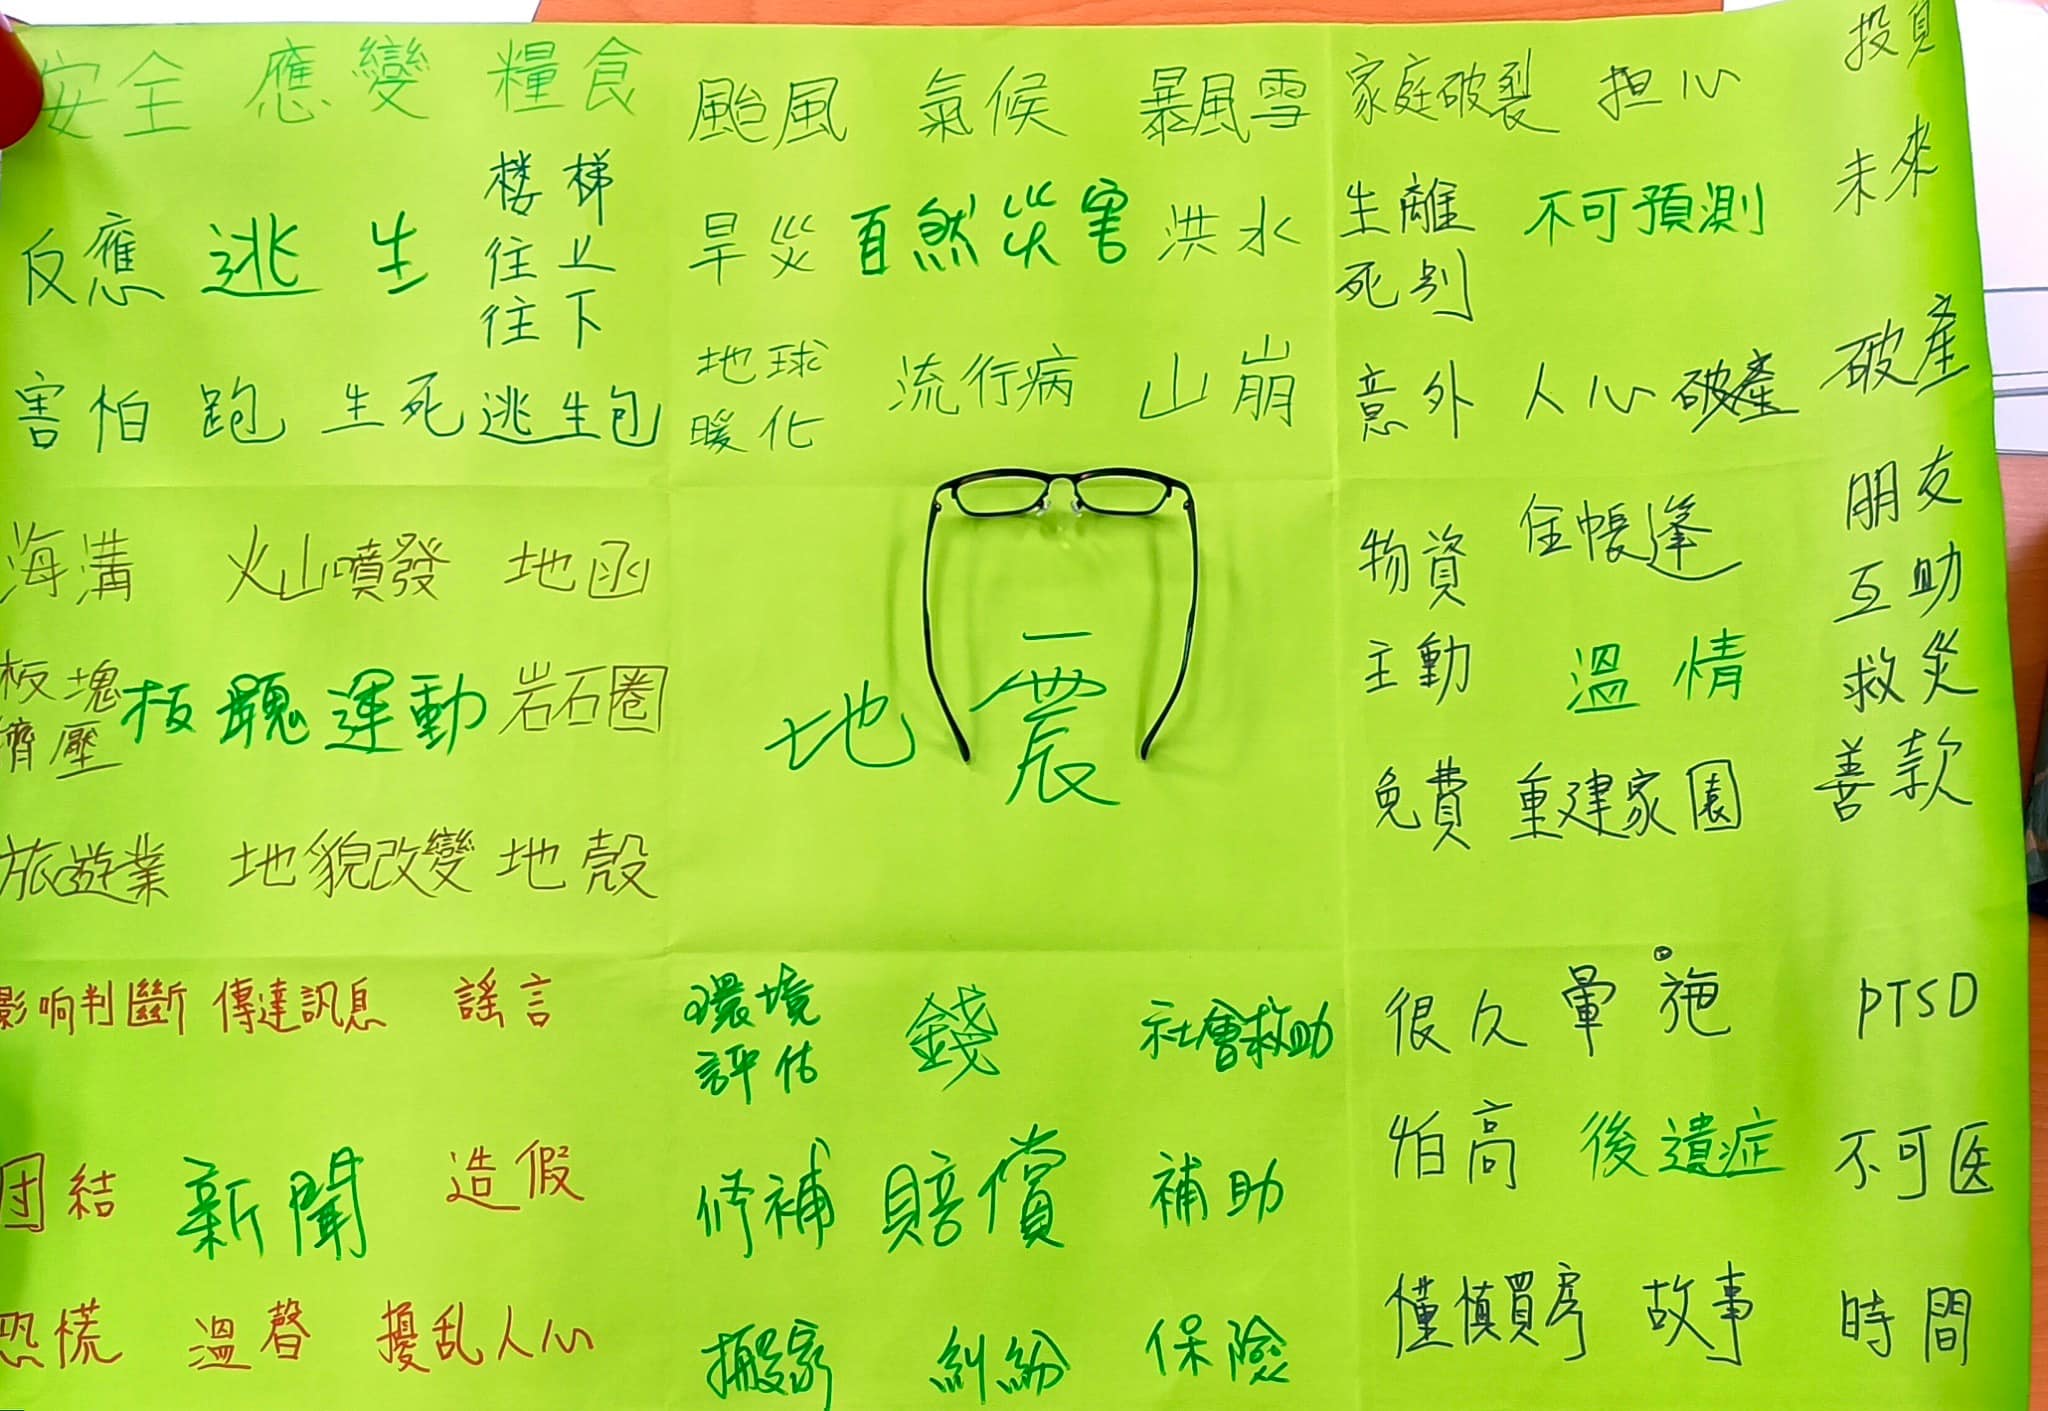 安全 應變 糧食
反應 逃生 楼梯
往上
往下
害怕 跑 生死 逃生包
颱風 氣候 暴風雪
旱災 自然災害 洪水
地球
暖化
流行病 山崩
家庭破裂 担心 投資
生離
死別
不可預測 未來
意外 人心破產 破產
海溝 火山噴發 地函
板塊
擠壓
板塊運動 岩石圈
旅遊業 地貌改變 地殼
地震
物資 住帳篷 朋友
互助
主動 溫情 救災
免費 重建家園 善款
影响判斷 傳達訊息 謠言
团結 新聞 造假
恐慌 溫馨 擾乱人心
環境
評估
錢 社會救助
修補 賠償 補助
搬家 糾紛 保險
很久 暈 PTSD
怕高 後遺症 不可医
慎買房 故事 時間